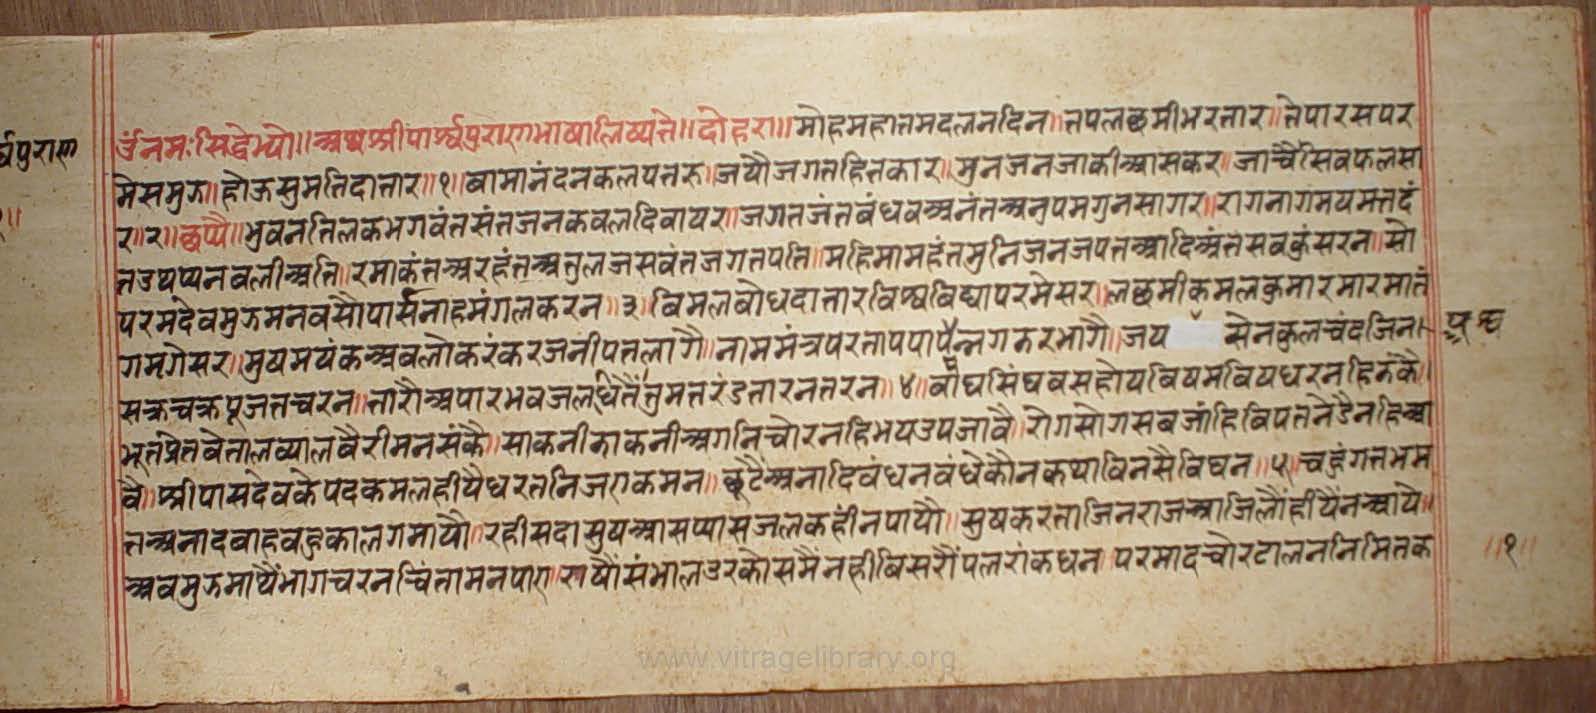 र्श्वपुराण
॥
उँनमःसिद्धेभ्यो॥अथश्रीपार्श्वपुराणभाषालिष्यते॥दोहरा॥मोहमहातमदलनदिन॥तपलछमीभरतार॥तेपारसपर
मेसमुझ॥होऊसुमतिदातार॥१॥बामानंदनकलपतरु॥जयौजगतहितकार॥मुनजनजाकीआसकर॥जाचैसिवफलसा
र॥२॥छप्पै॥भुवनतिलकभगवंतसंतजनकवलदिवायर॥जगतजंतबंधवअनंतअनुपमगुनसागर॥रागनागमयमत्तदं
तउथप्पनबलीअति॥रमाकंतअरहंतअतुलजसवंतजगतपति॥महिमामहंतमुनिजनजपतआदिअंतसवकुंसरन॥सो
परमदेवमुझमनवसौपार्सनाहमंगलकरन॥३॥बिमलबोधदातारविश्वबिद्यापरमेसर॥लछमीकमलकुमारमारमातं
गमृगेसर॥मुषमयंकअवलोकरंकरजनीपतलागै॥नाममंत्रपरतापपापपैन्नगडरभागै॥जय सेनकुलचंदजिन॥
सक्रचक्रपूजतचरन॥तारौअपारभवजलधितैंतुमतरंडतारनतरन॥४॥बाघसिंघवसहोयबिषमबिषधरनहिडंकै॥
भूतप्रेतबेतालव्यालबैरीमनसंकै॥साकनीडाकनीअगनिचोरनहिभयउपजावै॥रोगसोगसबजांहिबिपतनेडैनहिआ
वै॥श्रीपासदेवकेपदकमलहीयैधरतनिजएकमन॥छूटैअनादिवंधनवंधेकौनकथाविनसैबिघन॥५॥चहुंगतभम
तअनादवाहवहुकालगमायौ॥रहीसदासुषआसप्यासजलकहींनपायौ॥सुषकरताजिनराजआजिलौंहीयैनआये॥
अवमुझमाथैंभागचरनचिंतामनपाए॥राषौंसंभालउरकोसमैंनहीबिसरौंपलरांकधन॥परमादचोरटालननिमितक
॥१॥
www.vitragelibrary.org